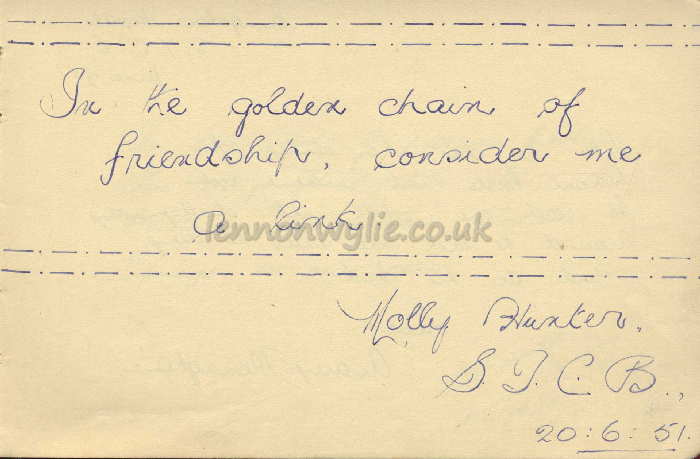 In the golden chain of
friendship, consider me
a link.
lennonwylie.co.uk
Molly Hunter.
S. T. C. B.,
20:6:51.